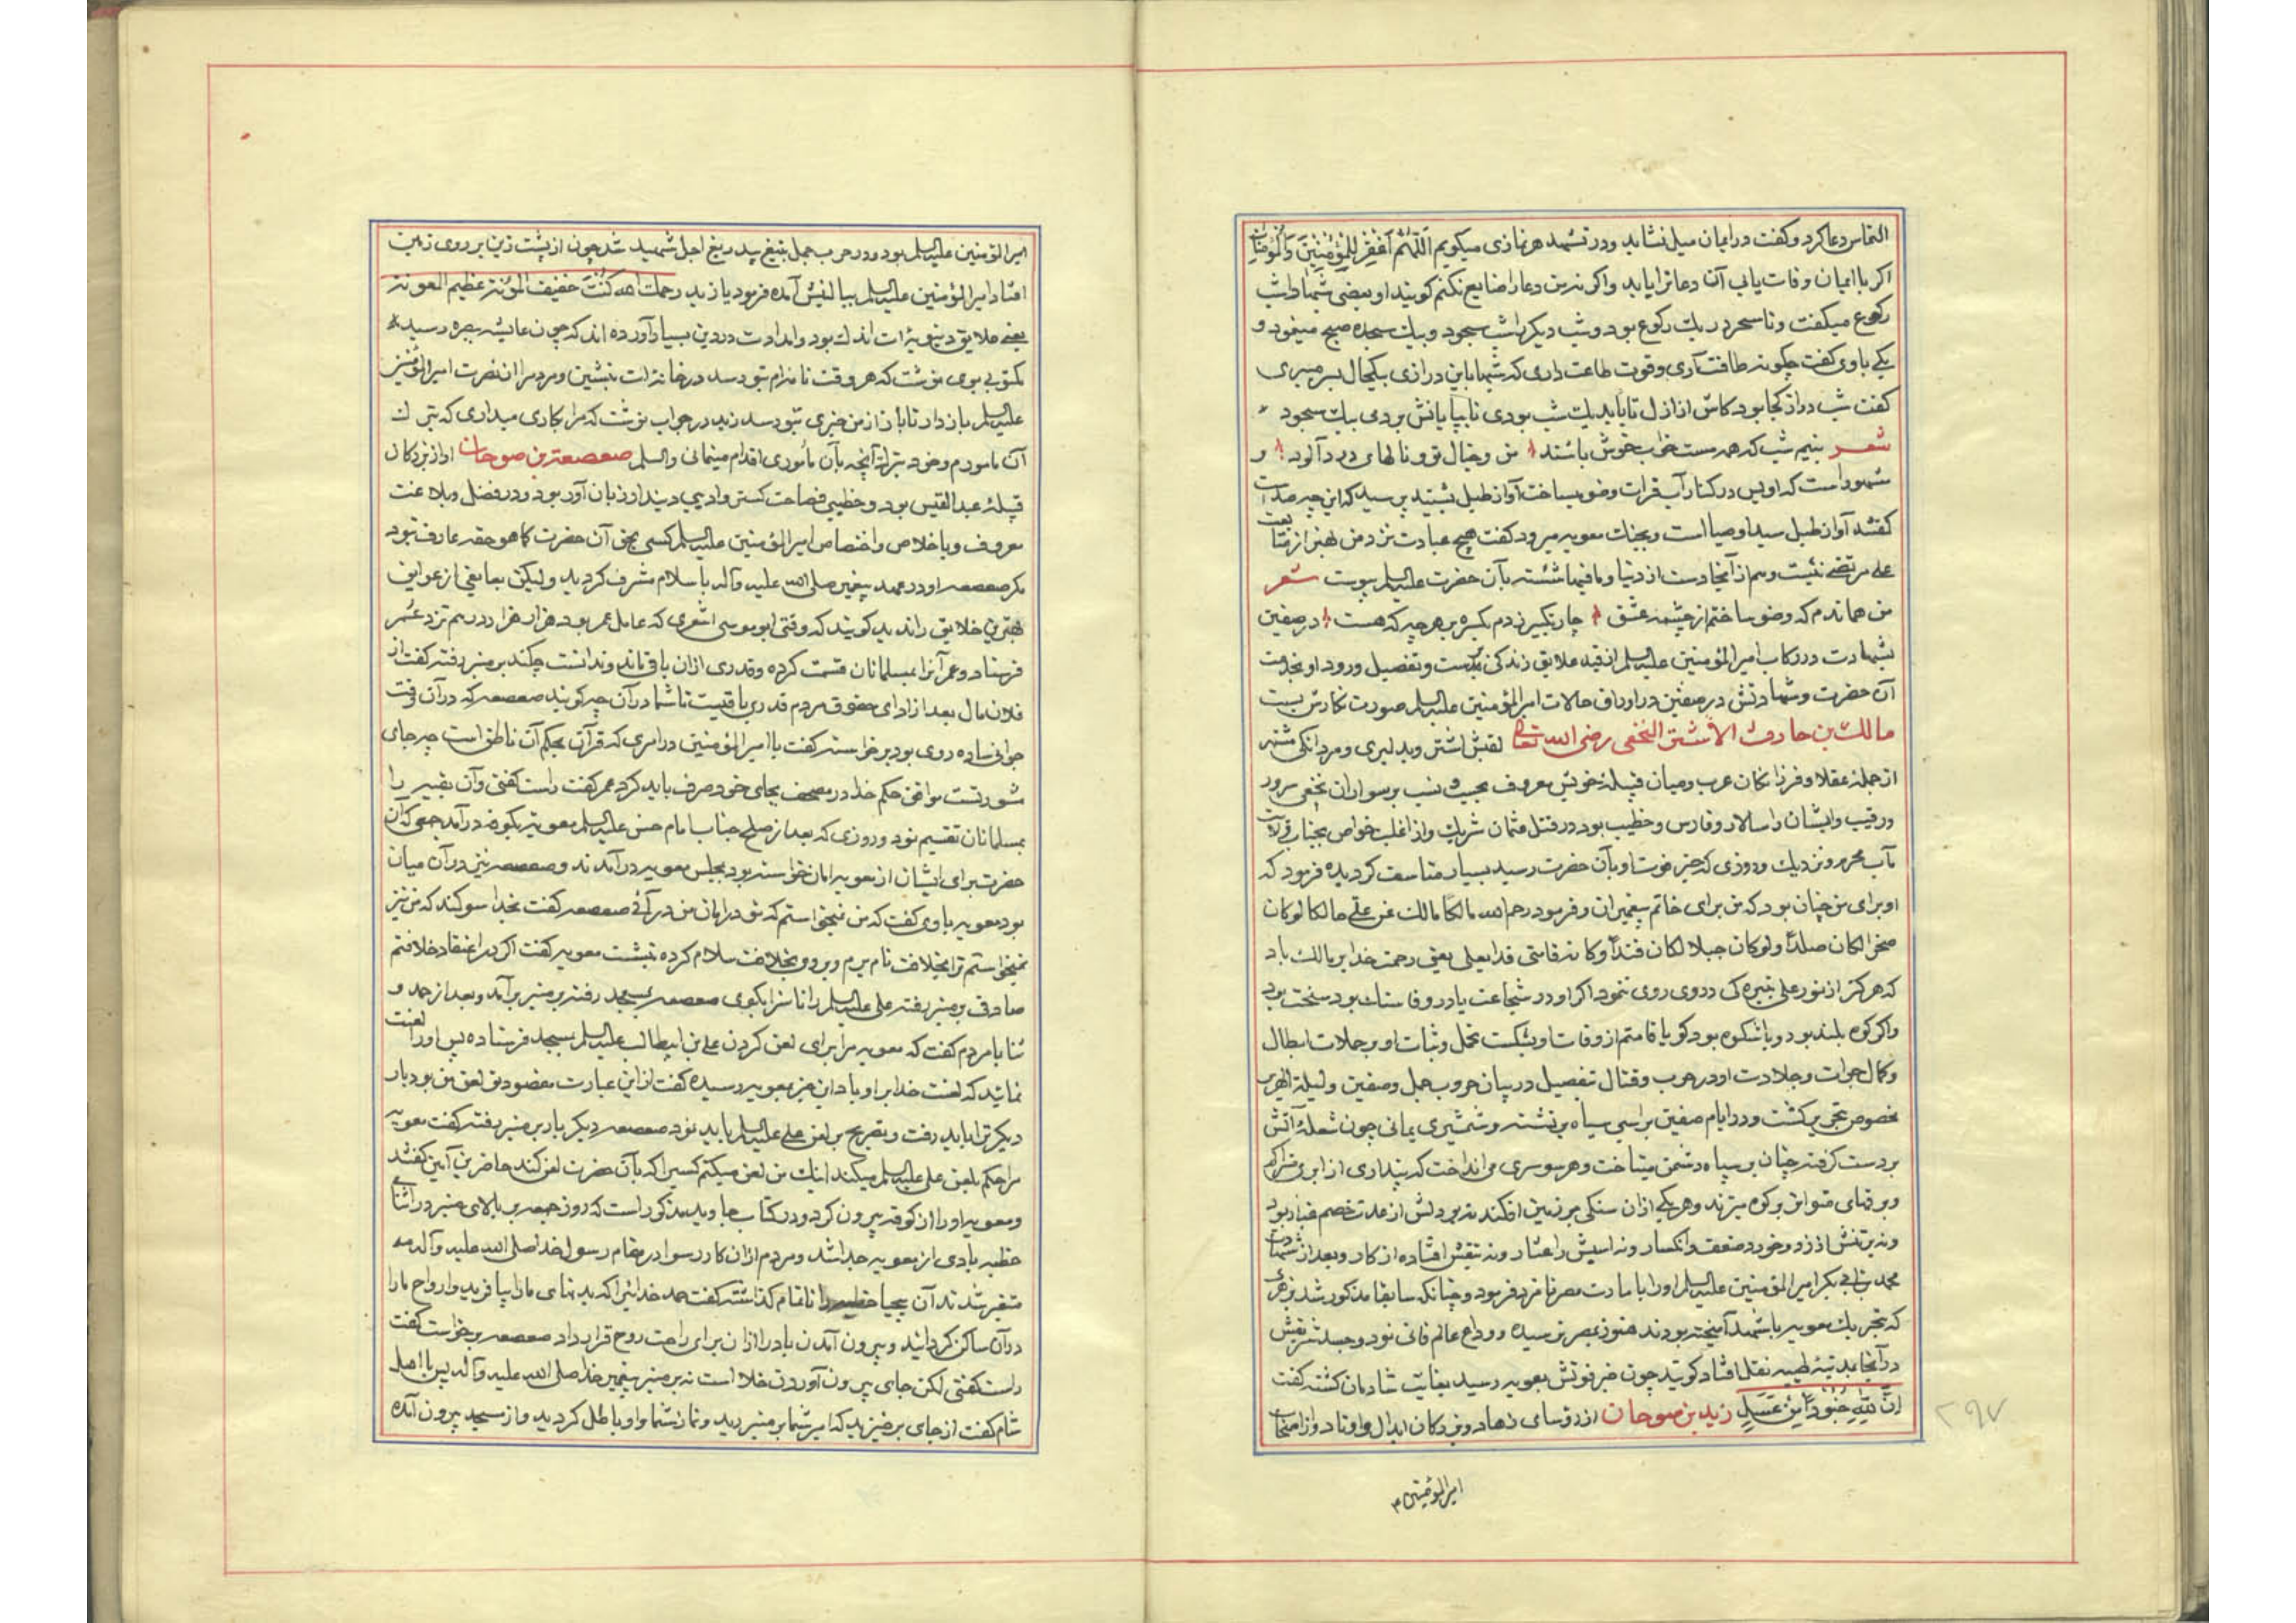 التماس دعا کرد و کفت در ایمان میل نشاید و در تشهد هر نمازی میکویم اَللّهُمَّ اغْفِرْ لِلْمُؤْمِنینَ وَالْمُؤْمِناتِ
اکر با ایمان وفات یابی آن دعا ترا یابد و اکر نه من دعا را ضایع نکنم کویند او بعضی شبها را شب
رکوع میکفت و تا سحر در یک رکوع بود و شب دیکر را شب سجود و بیک سجده صبح مینمود و
یکی با وی کفت چکونه طاقت آری و قوت طاعت داری که شبها باین درازی بیکحال بسر میبری
کفت شب دراز کجا بود کاش از ازل تا بابد یک شب بودی تا بپایانش بردمی بیک سجود
شعر بنیم شب که همه مست خواب خوش باشند من و خیال تو و نالهای درد آلود و
مشهور است که اویس در کنار آب فرات وضو میساخت آواز طبل شنید پرسید که این چه صداست
کفتند آواز طبل سید اوصیا است و بجنک معویه میرود کفت هیچ عبادت نزد من بهتر از متابعت
علی مرتضی نیست و هم از آنجا دست از دنیا و ما فیها شسته بآن حضرت علیه السلم پیوست شعر
من هماندم که وضو ساختم از چشمه عشق چار تکبیر زدم یکسره بر هر چه که هست در صفین
بشهادت در رکاب امیر المؤمنین علیه السلم از قید علایق زندکی برست و تفصیل ورود او بخدمت
آن حضرت و شهادتش در صفین در اوراق حالات امیر المؤمنین علیه السلم صورت نکارش بست
مالک بن حارث الاشتر النخعی رضی الله تعالی لقبش اشتر و بدلیری و مردانکی مشتهر
از جمله عقلا و فرزانکان عرب و میان قبیله خویش معروف بحیث و نسب بر سواران نخعی سرور
و رقیب و ایشان را سالار و فارس و خطیب بود در قتل عثمان شریک و از اغلب خواص بجناب ولایت
مآب محرم و نزدیک و روزی که خبر فوت او بآن حضرت رسید بسیار متاسف کردیده فرمود که
او برای من چنان بود که من برای خاتم پیغمبران و فرمود رحم الله مالکا مالک عز علی هالکا لو کان
صخرا لکان صلدا و لو کان جبلا لکان فندا و کانه قد منی قدا یعنی رحمت خدا بر مالک باد
که هرکز از نور علی بتیره کی دروی روی ننمود اکر او در شجاعت یا در وفا سنک بود سخت بود
و اکر کوه بلند بود و با شکوه بود کویا قامتم از وفات او بشکست تحمل و ثبات او بر حملات ابطال
و کمال جرات و جلادت او در حرب و قتال بتفصیل در بیان حروب جمل و صفین و لیلة الهریر
بخصوص تحریر کشت و در ایام صفین بر اسبی سیاه بر نشسته و شمشیری یمانی چون شعله آتش
بر دست کرفته چنان بر سپاه دشمن میتاخت و هر سو سری می انداخت که پنداری از ابر متراکم
و برقهای متواتر بر کوه میزند و هر یکی از آن سنکی بر زمین افکند نه بر دلش از عدت خصم غبار بود
و نه بر تنش از زد و خورد ضعف و انکسار و نه اسبش را عثار و نه تیغش افتاده از کار و بعد از شهادت
محمد بن ابی بکر امیر المؤمنین علیه السلم او را بامارت مصر نامزد فرمود و چنانکه سابقا مذکور شد بزهری
که بتحریک معویه با شهد آمیخته بودند هنوز بمصر نرسیده وداع عالم فانی نمود و جسد شریفش
در آنجا بمدینه طیبه نقل افتاد کویند چون خبر فوتش بمعویه رسید بغایت شادمان کشته کفت
اِنَّ لِلّهِ جُنُوداً مِنْ عَسَلٍ زید بن صوحان از رؤسای زهاد و بزرکان ابدال و اوتاد و از اصحاب
امیر المؤمنین ۴
۲۹۷
امیر المؤمنین علیه السلم بود و در حرب جمل بتیغ بیدریغ اجل شهید شد چون از پشت زین بر روی زمین
افتاد امیر المؤمنین علیه السلم ببالینش آمده فرمود یا زید رحمک الله کُنْتَ خفیف المؤنة عظیم المعونة
یعنی علایق دنیویه ات اندک بود و امدادت در دین بسیار آورده اند که چون عایشه ببصره رسید
مکتوبی بوی نوشت که هر وقت نامه ام بتو رسد در خانه ات بنشین و مردم را از نصرت امیر المؤمنین
علیه السلم باز دار تا باز از من خبری بتو رسد زید در جواب نوشت که مرا بکاری میداری که بترک
آن مامورم و خود بترک آنچه بآن مأموری اقدام مینمائی والسلم صعصعة بن صوحان او از بزرکان
قبیله عبد القیس بود و خطیبی فصاحت کستر و ادیبی دیندار زبان آور بود و در فضل و بلاغت
معروف و باخلاص و اختصاص امیر المؤمنین علیه السلم کسی بحق آن حضرت کما هو حقه عارف نبود
مکر صعصعه او در عهد پیغمبر صلی الله علیه و آله باسلام مشرف کردید ولیکن بمانعی از عوایق
بهترین خلایق را ندید کویند که وقتی ابو موسی اشعری که عامل عمر بود هزار هزار درهم نزد عمر
فرستاد و عمر آنرا بمسلمانان قسمت کرده و قدری از ان باقی ماند و ندانست چکند بر منبر رفته کفت از
فلان مال بعد از ادای حقوق مردم قدری باقیست تا شما در آن چه کوئید صعصعه که در آن وقت
جوانی ساده روی بود برخواسته کفت یا امیر المؤمنین در امری که قرآن بحکم آن ناطق است چه جای
مشورتست موافق حکم خدا در مصحف بجای خود صرف باید کرد عمر کفت راست کفتی و آن بقیه را
بمسلمانان تقسیم نمود و روزی که بعد از صلح جناب امام حسن علیه السلم معویه بکوفه در آمد جمعی که آن
حضرت برای ایشان از معویه امان خواسته بود بمجلس معویه در آمدند و صعصعه نیز در آن میان
بود معویه با وی کفت که من نمیخواستم که تو در امان من در آئی صعصعه کفت بخدا سوکند که من نیز
نمیخواستم ترا بخلافت نام برم و بر وی بخلافت سلام کرده بنشست معویه کفت اکر در اعتقاد خلافتم
صادقی بر منبر رفته علی علیه السلم را ناسزا بکوی صعصعه بمسجد رفته بر منبر بر آمد و بعد از حمد و
ثنا با مردم کفت که معویه مرا برای لعن کردن علی بن ابیطالب علیه السلم بمسجد فرستاده پس او را لعنت
نمائید که لعنت خدا بر او باد این خبر بمعویه رسیده کفت از این عبارت مقصود تو لعن من بود بار
دیکر ترا باید رفت و بتصریح بر لعن علی علیه السلم باید نمود صعصعه دیکر بار بر منبر رفته کفت معویه
مرا حکم بلعن علی علیه السلم میکند اینک من لعن میکنم کسیرا که بآن حضرت لعن کند حاضرین آمین کفتند
و معویه او را از کوفه بیرون کرد و در کتاب جاوید مذکور است که روز جمعه بر بالای منبر در اثنای
خطبه بادی از معویه جدا شد و مردم از ان کار رسوا در مقام رسول خدا صلی الله علیه و آله
متغیر شدند آن بیحیا خطبه را ناتمام کذاشته کفت حمد خدائیرا که بدنهای ما را بیافرید و ارواح ما را
در آن ساکن کردانید و بیرون آمدن باد را از ان برای راحت روح قرار داد صعصعه برخواست کفت
راست کفتی لکن جای بیرون آوردن خلا است نه بر منبر پیغمبر خدا صلی الله علیه و آله پس با اهل
شام کفت از جای برخیزید که امیر شما بر منبر رید و نماز شما و او باطل کردید و از مسجد بیرون آمده